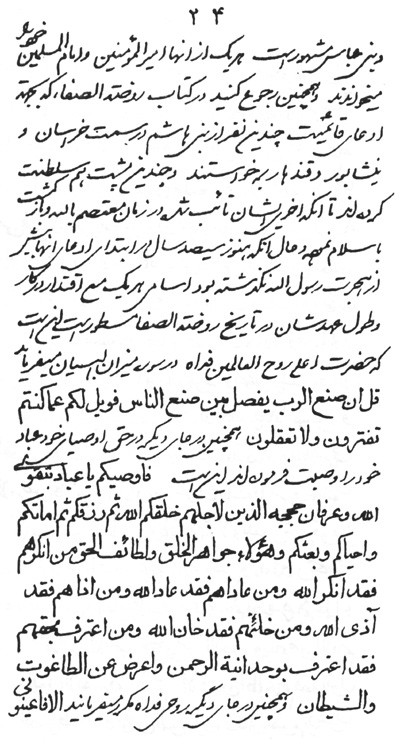 ۲۴
و بنی عباس مشهور است هریک از انها امیر المؤمنین و امام المسلمین خود را
میخواندند و همچنین رجوع کنید در کتاب روضة الصفا، که بجهة
ادعای قائمیت چندین نفر از بنی هاشم در سمت خراسان و
نیشابور و قندهار برخواستند و چندین پشت هم سلطنت
کردند تا انکه اخر ایشان تائب شد در زمان معتصم بالله و بازگشت
باسلام نمود و حال آنکه هنوز سیصد سال از ابتدای ادعای انها
از هجرت رسول الله نگذشته بود اسامی هریک مع اقتدار و کار
و طول عهدشان در تاریخ روضة الصفا مسطور است این است
که حضرت اعلی روح العالمین فداه در سوره میزان البیان میفرماید
قل ان صنع الرب یفصل من صنع الناس فویل لکم عما کنتم
تفترون ولا تعقلون همچنین در جای دیگر در حق اوصیای خود عباد
خود را وصیت فرموده اند این است فاوصیکم یا عباد بتقوی
الله و عرفان حججه الذین لاجلهم خلقکم الله ثم رزقکم ثم اماتکم
و احیاکم و بعثکم و هؤلاء جواهر الخلق و لطائف الحق من انکرهم
فقد انکر الله ومن عاداهم فقد عاد الله ومن اذاهم فقد
آذی الله ومن خانهم فقد خان الله ومن اعترف بحقهم
فقد اعترف بوحدانیة الرحمن و اعرض عن الطاغوت
والشیطان و همچنین در جای دیگر روحی فداه مکرر میفرمایند الا فاعینونی